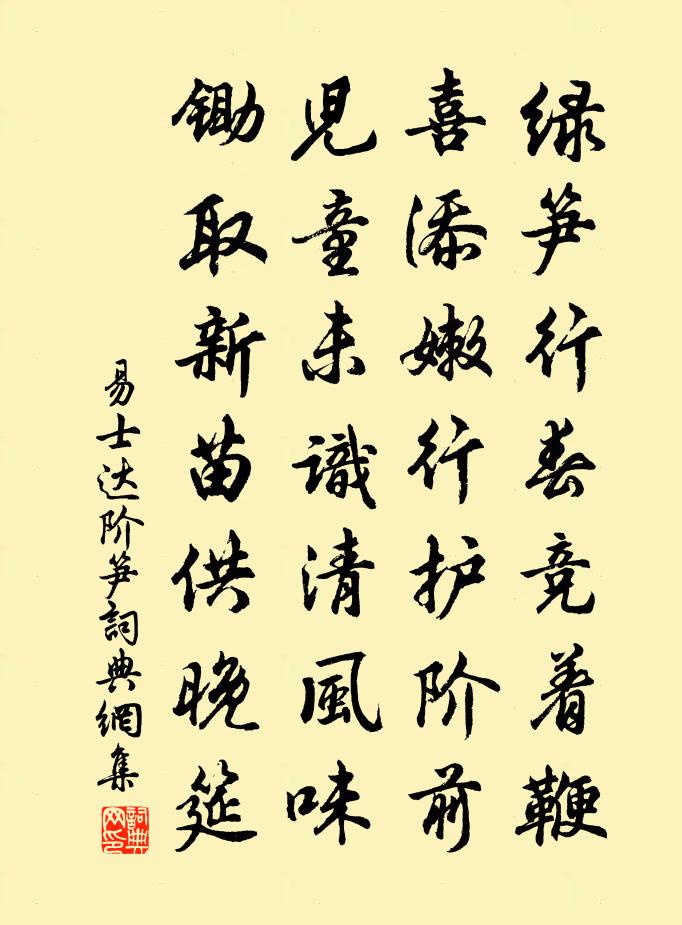 绿笋行春竞着鞭
喜添嫩行护阶前
児童未識清風味
鋤取新苗供晚筵
易士达阶笋詞典網集
詞典网印